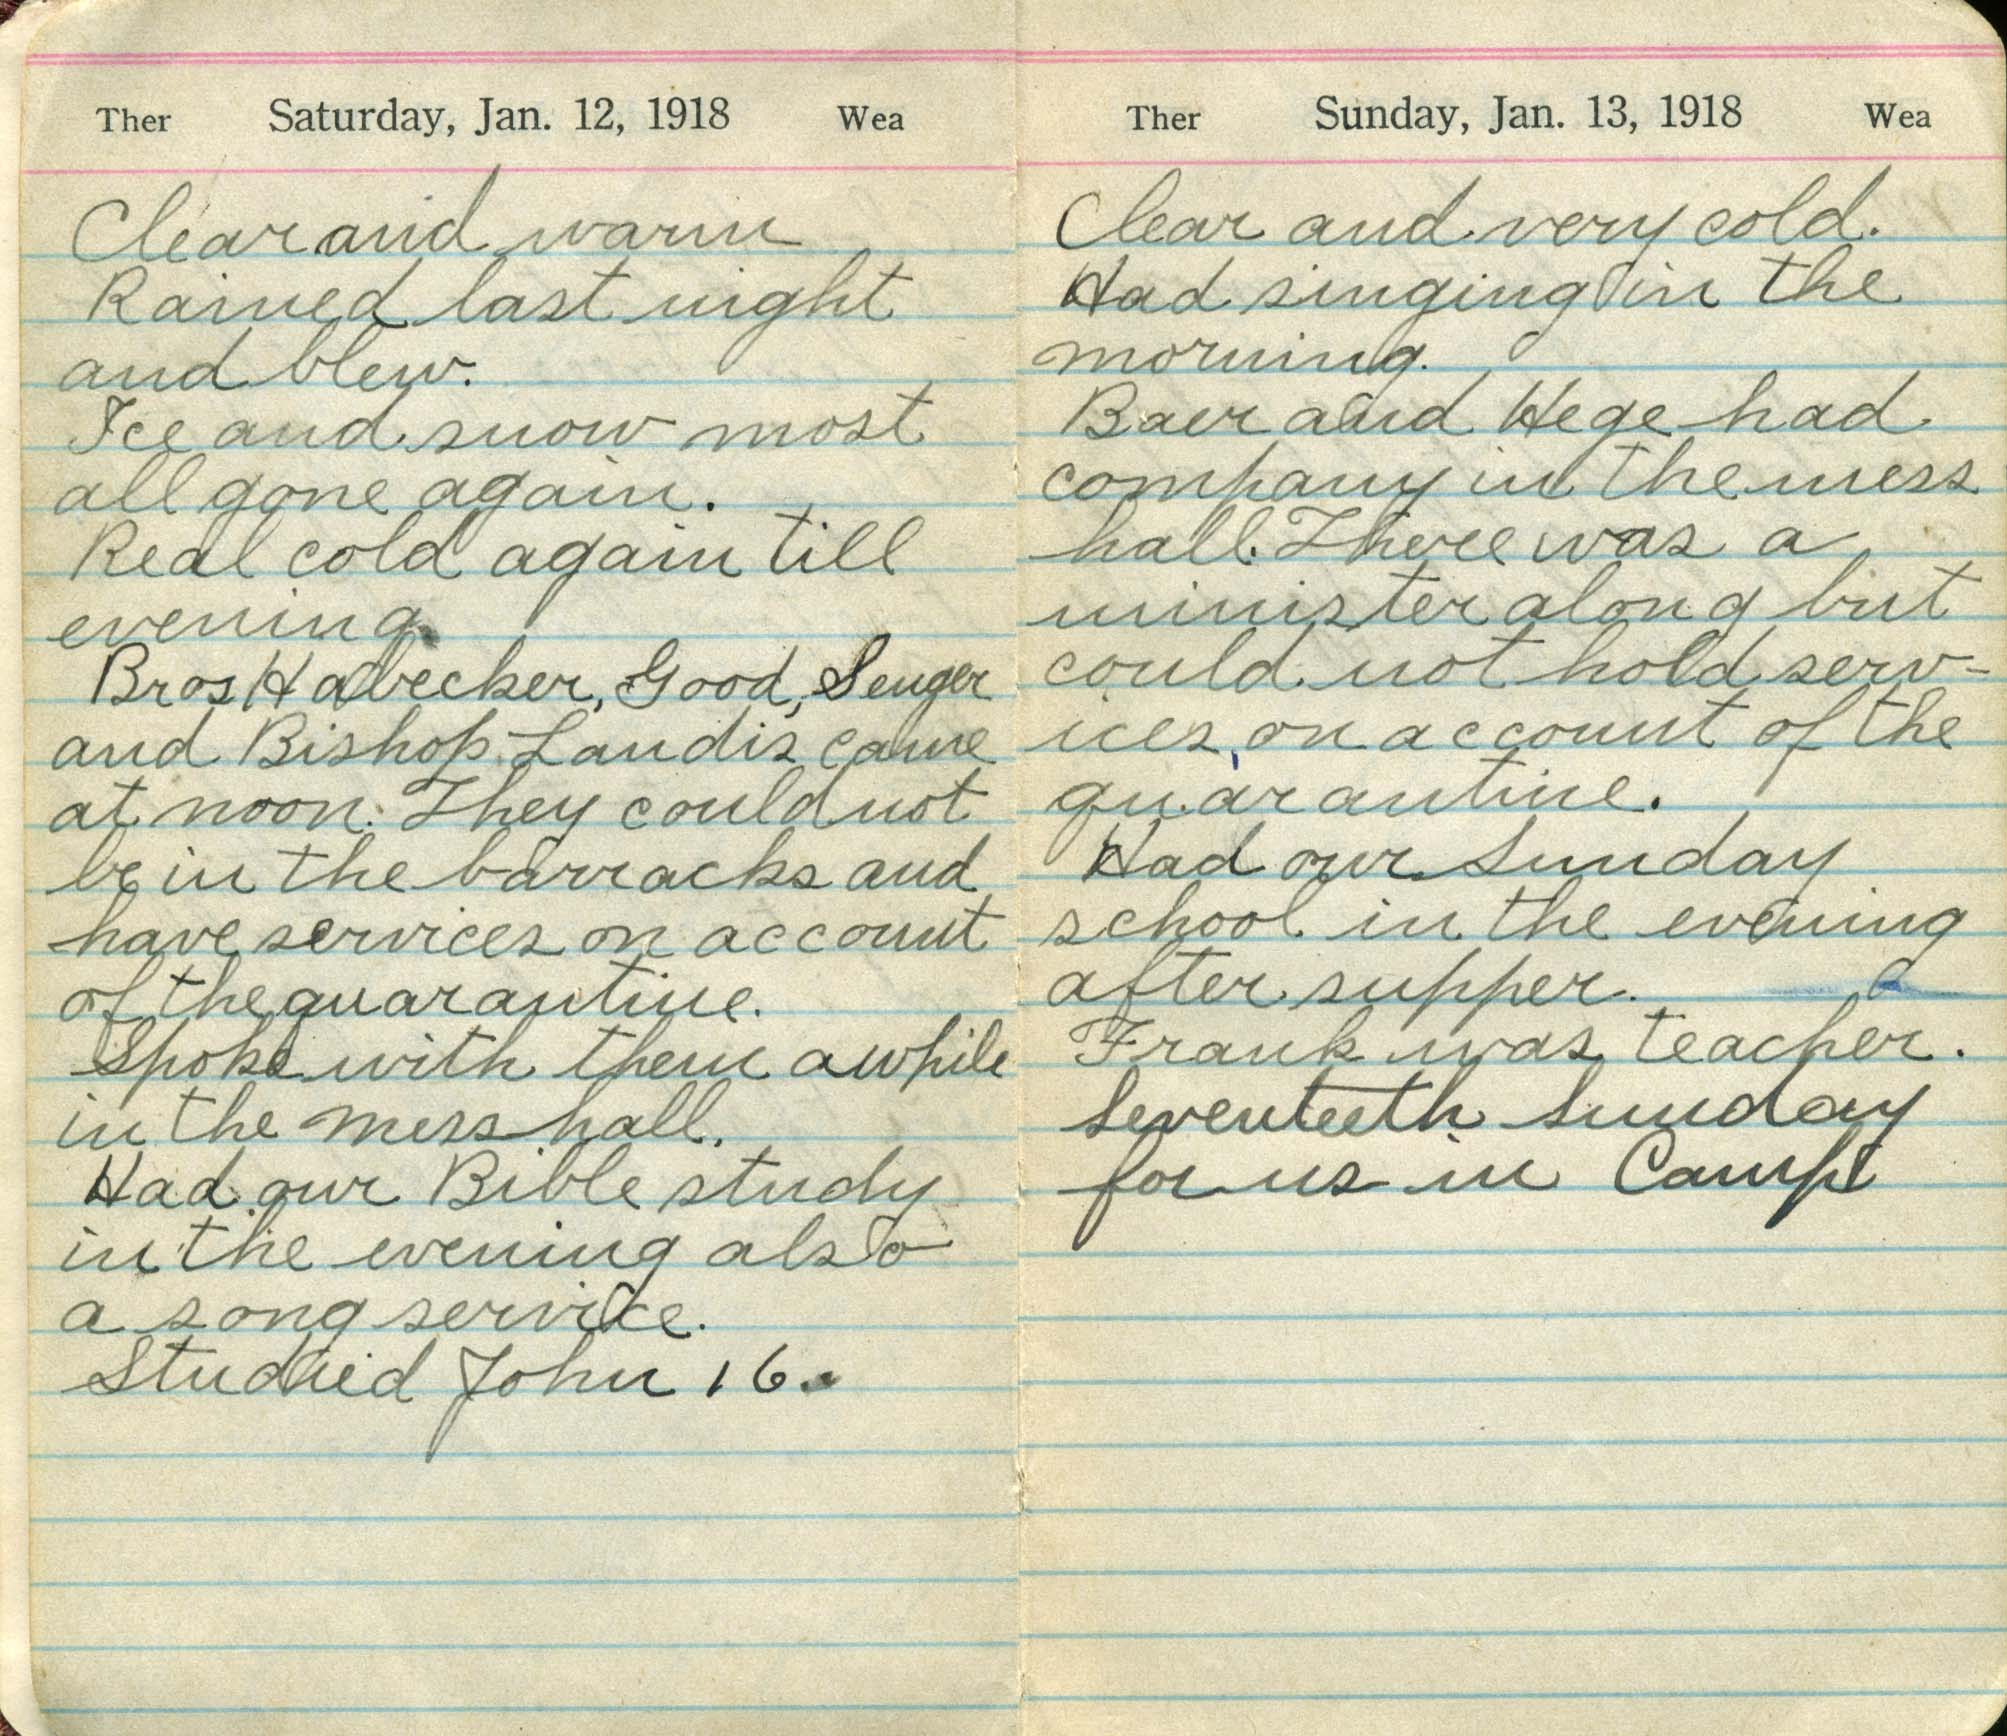 Ther Saturday, Jan. 12, 1918 Wea
Clear and warm
Rained last night
and blew.
Ice and snow most
all gone again.
Real cold again till
evening
Bros Habecker, Good, Senger
and Bishop Landis came
at noon. They could not
be in the barracks and
have services on account
of the quarantine.
Spoke with them awhile
in the mess hall.
Had our Bible study
in the evening also
a song service.
Studied John 16.
Ther Sunday, Jan. 13, 1918 Wea
Clear and very cold.
Had singing in the
morning.
Baer and Hege had
company in the mess
hall. There was a
minister along but
could not hold serv-
ices, on account of the
quarantine.
Had our Sunday
school in the evening
after supper.
Frank was teacher.
Seventeeth Sunday
for us in Camp